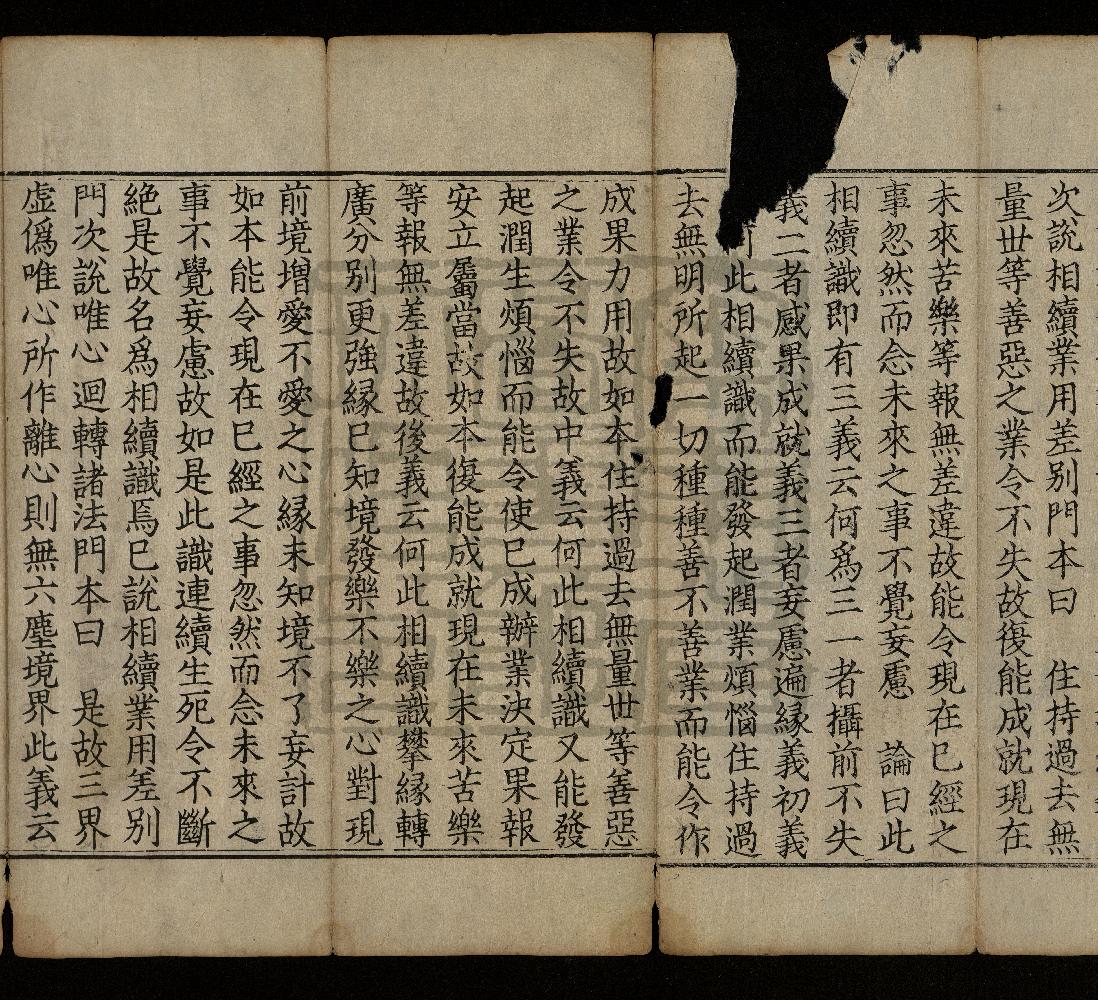 次說相續業用差别門本曰　住持過去無
量世等善惡之業令不失故復能成就現在
未來苦樂等報無差違故能令現在已經之
事忽然而念未來之事不覺妄慮　論曰此
相續識即有三義云何爲三一者攝前不失
義二者感果成就義三者妄慮遍緣義初義
此相續識而能發起潤業煩惱住持過
去無明所起一切種種善不善業而能令作
成果力用故如本住持過去無量世等善惡
之業令不失故中義云何此相續識又能發
起潤生煩惱而能令使已成辦業決定果報
安立屬當故如本復能成就現在未來苦樂
等報無差違故後義云何此相續識攀緣轉
廣分别更強緣已知境發樂不樂之心對現
前境增愛不愛之心緣未知境不了妄計故
如本能令現在已經之事忽然而念未來之
事不覺妄慮故如是此識連續生死令不斷
絕是故名爲相續識焉已說相續業用差别
門次說唯心迴轉諸法門本曰　是故三界
虛僞唯心所作離心則無六塵境界此義云